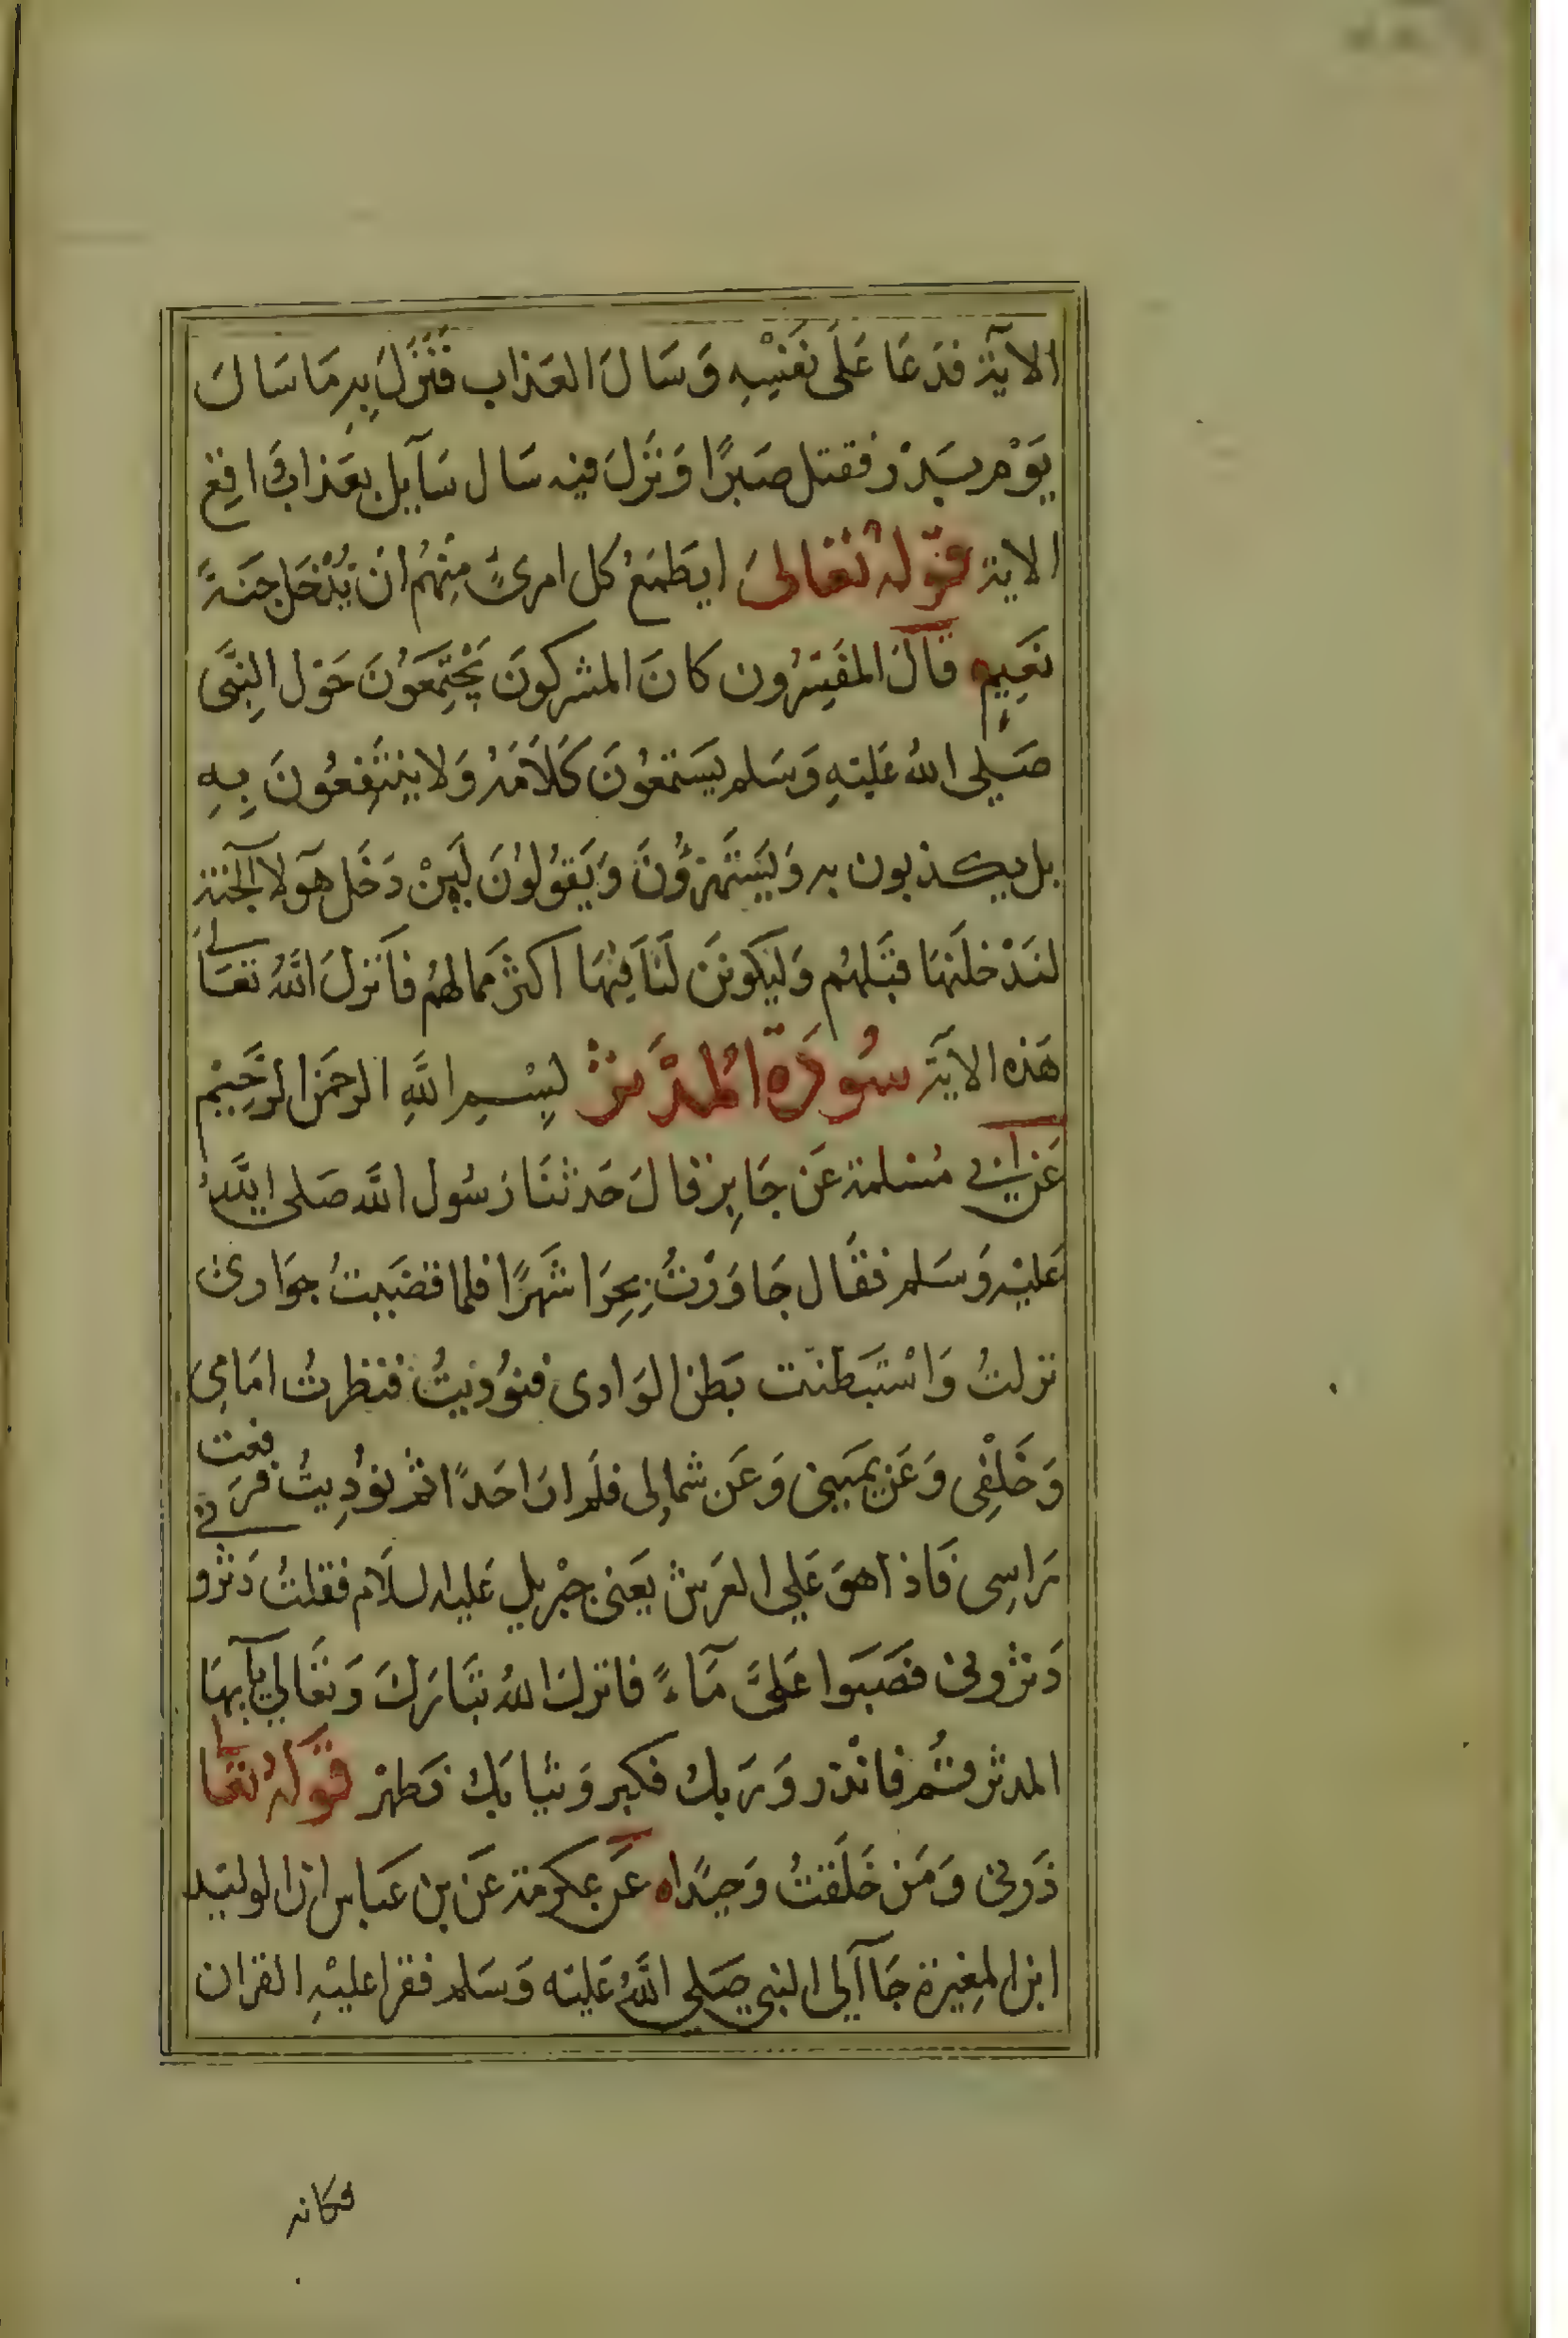 الاية فدَعَا عَلَى نفسِهِ وَسَالَ العَذاب فَنَزَلَ بِهِ مَا سَالَ
يَوْم بَدْر فقتل صَبرًا وَنَزَلَ فيه سَال سَآيل بعَذاب وَاقِع
الاية قوله تعَالىَ ايَطمَعُ كل امرئٍ مِنْهُم ان يُدْخَل جَنةَ
نعِيمٍ قالَ المفَسِرُون كانَ المشركونَ يَجْتَمِعَوُنَ حَوْل النِبَّى
صَلى اللهُ عَليْهِ وَسَلم يسَتمعُونَ كَلَامَهُ وَلا ينتفِعُونَ بِهِ
بل يكذبون به وَيَستَهزؤُنَ وَيَقوُلوُنَ لَيِنْ دَخَل هَولاَ الجَنة
لنَدْخلَنهَا قبَلهُم وَليَكونَن لَنَا فِيْهَا اكثرَ مما لهُم فأنزلَ اللَّهُ تعَالى
هَذه الايَة سُورَة المدَّثرْ بِسْمِ اللَّهِ الرحمَن الرَّحِيْم
عَن ابى مُسَلمة عَن جَابِر قالَ حَدثنَا رَسُول اللَّه صَلى اللَّهُ
عَليْه وَسَلم فقَال جَاوَرْتُ بحِرَا شَهرًا فلما قضَيتُ جوَارى
نزلتُ وَاسْتَبطَنت بَطن الوَادى فنوُديتُ فنظرتُ امَامِى
وَخَلْفِى وَعَن يمَينى وَعَن شمالِى فلَم ارَ احَدًا ثم نوُدِيتُ فرَفعت
رَاسِى فَاذا هوَ عَلى العَرش يَعَنى جبْريل عَليه السلاَم فقلتُ دَثرو
دَثرُونى فصَبوا عَلىَّ مَآءً فانزل اللهُ تبَارَكَ وَتعَالى يَآيهَا
المدثر قُم فانْذر وَرَبك فكبر وَثيَابَك فطَهرْ قوَلهُ تعَالى
ذَرنى وَمَن خَلَقتُ وَحِيدًا عَن عِكرمَة عَن بن عَبَاس ان الوليَد
ابن المغِيْرَة جَا اَلى النبى صَلى اللَّهُ عَليْه وَسَلم فقرا عليْهِ القرَان
فكانه